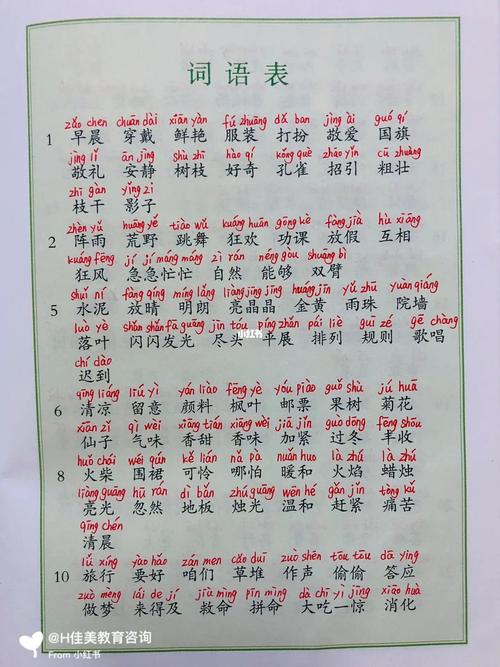 词语表
zǎo chen chuān dài xiān yàn fú zhuāng dǎ ban jìng ài guó qí
1 早晨 穿戴 鲜艳 服装 打扮 敬爱 国旗
jìng lǐ ān jìng shù zhī hào qí kǒng què zhāo yǐn cū zhuàng
敬礼 安静 树枝 好奇 孔雀 招引 粗壮
zhī gàn yǐng zi
枝干 影子
zhèn yǔ huāng yě tiào wǔ kuáng huān gōng kè fàng jià hù xiāng
2 阵雨 荒野 跳舞 狂欢 功课 放假 互相
kuáng fēng jí jí máng máng zì rán néng gòu shuāng bì
狂风 急急忙忙 自然 能够 双臂
shuǐ ní fàng qíng míng lǎng liàng jīng jīng huáng jīn yǔ zhū yuàn qiáng
5 水泥 放晴 明朗 亮晶晶 金黄 雨珠 院墙
luò yè shǎn shǎn fā guāng jìn tóu píng zhǎn pái liè guī zé gē chàng
落叶 闪闪发光 尽头 平展 排列 规则 歌唱
chí dào
迟到
qīng liáng liú yì yán liào fēng yè yóu piào guǒ shù jú huā
6 清凉 留意 颜料 枫叶 邮票 果树 菊花
xiān zǐ qì wèi xiāng tián xiāng wèi jiā jǐn guò dōng fēng shōu
仙子 气味 香甜 香味 加紧 过冬 丰收
huǒ chái wéi qún kě lián nǎ pà nuǎn huo huǒ là zhú là zhú
8 火柴 围裙 可怜 哪怕 暖和 火焰 蜡烛
liàng guāng hū rán dì bǎn zhú guāng wēn hé gǎn jǐn tòng kǔ
亮光 忽然 地板 烛光 温和 赶紧 痛苦
qīng chén
清晨
lǚ xíng yào hǎo zán men cǎo duī zuò shēng tōu tōu dā ying
10 旅行 要好 咱们 草堆 作声 偷偷 答应
zuò mèng lái de jí jiù mìng pīn mìng dà chī yì jīng xiāo huà
做梦 来得及 救命 拼命 大吃一惊 消化
小红书
@H佳美教育咨询
From 小红书